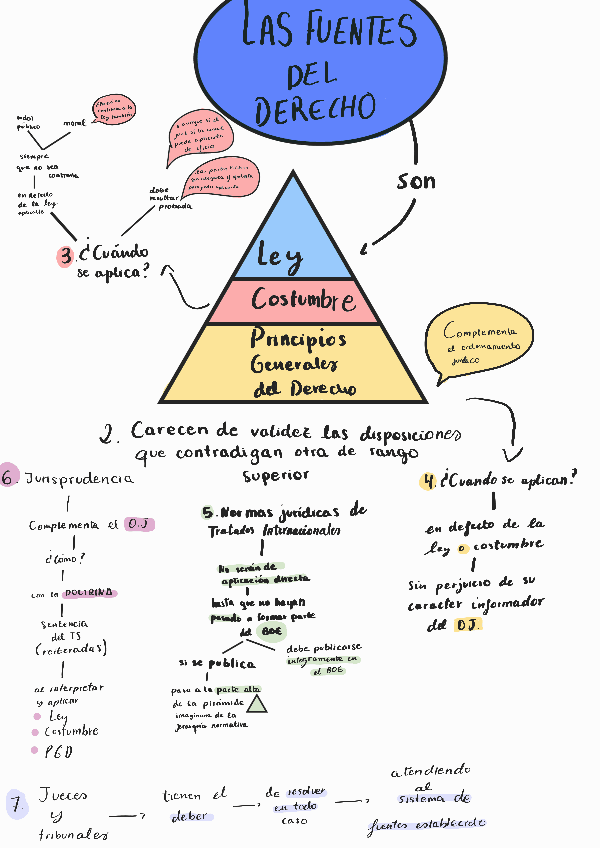 LAS FUENTES
DEL
DERECHO
son
Ley
Costumbre
Principios
Generales
del Derecho
Complementa
el ordenamiento
jurídico
3. ¿Cuándo
se aplica?
moral
siempre
que no sea
contraria
en defecto
de la ley
aplicable
debe
resultar
probada
2. Carecen de validez las disposiciones
que contradigan otra de rango
superior
4. ¿Cuando se aplican?
en defecto de la
ley o costumbre
Sin perjuicio de su
caracter informador
del OJ.
5. Normas jurídicas de
Tratados Internacionales
No serán de
aplicación directa
hasta que no hayan
pasado a formar parte
del BOE
si se publica
pasa a la parte alta
de la pirámide
imaginaria de la
jerarquía normativa
debe publicarse
integramente en
el BOE
6. Jurisprudencia
Complementa el O.J
¿Cómo?
con la DOCTRINA
Sentencia
del TS
(reiteradas)
al interpretar
y aplicar
Ley
Costumbre
PGD
7. Jueces
y
tribunales
tienen el
deber
de resolver
en todo
caso
atendiendo
al
sistema de
fuentes establecido